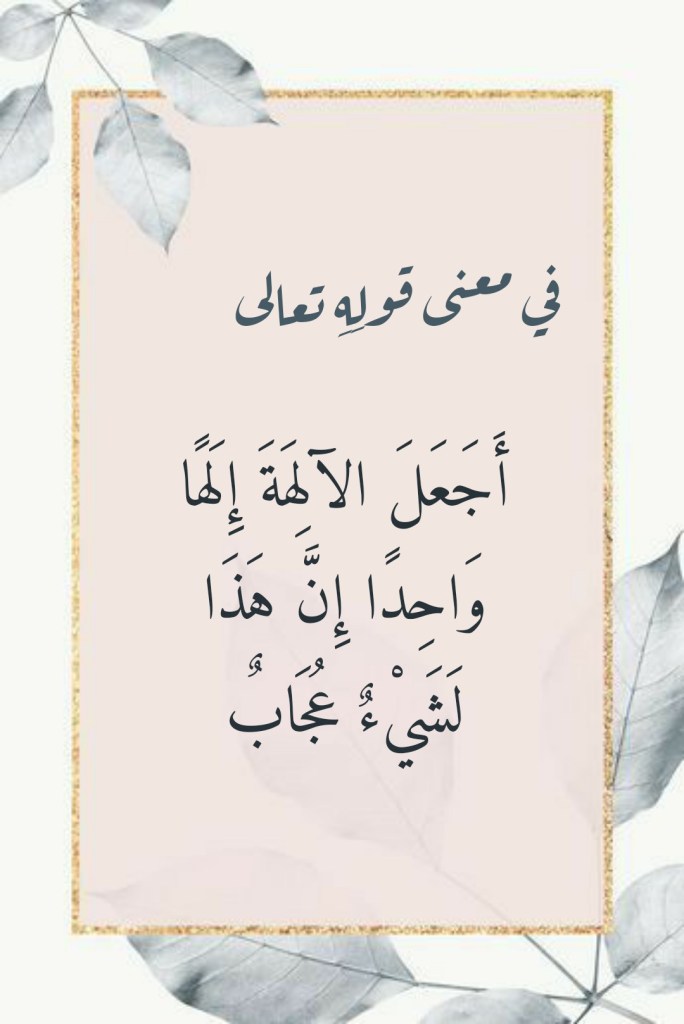 في معنى قولِهِ تعالى
أَجَعَلَ الآلِهَةَ إِلَهًا
وَاحِدًا إِنَّ هَذَا
لَشَيْءٌ عُجَابٌ